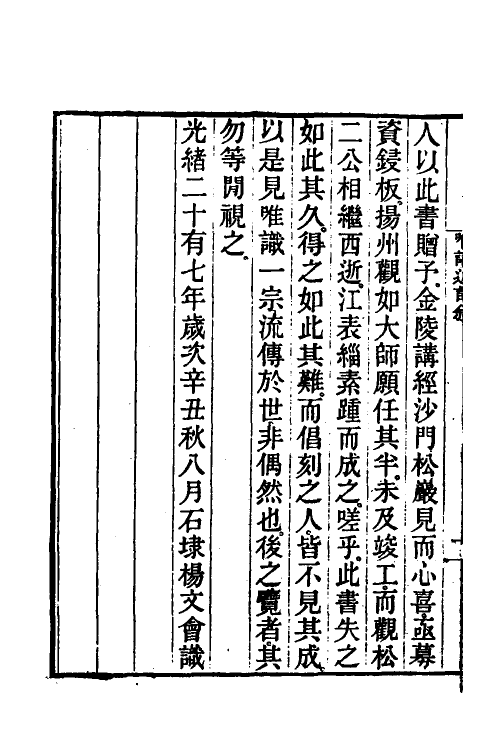 人以此書贈予金陵講經沙門松巖見而心喜亟募
資鋟板揚州觀如大師願任其半未及竣工而觀松
二公相繼西逝江表緇素踵而成之嗟乎此書失之
如此其久得之如此其難而倡刻之人皆不見其成
以是見唯識一宗流傳於世非偶然也後之覽者其
勿等閒視之
光緒二十有七年歲次辛丑秋八月石埭楊文會識